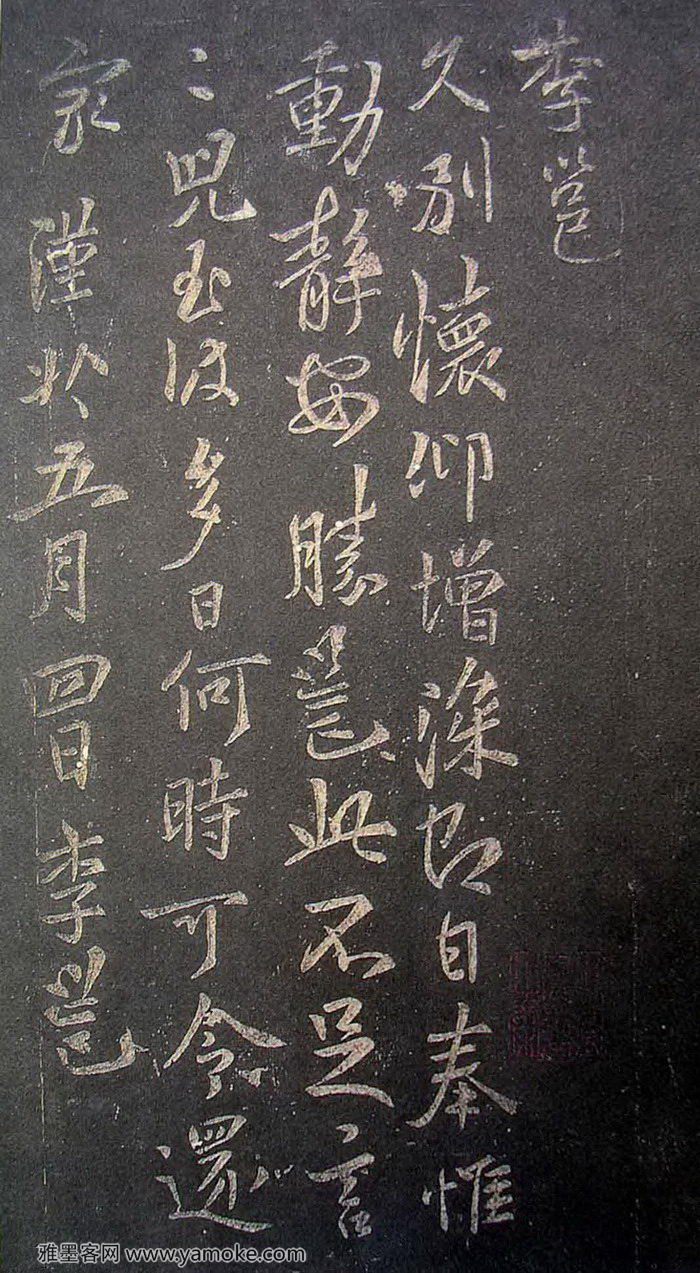 李邕
久別懷仰增深即日奉惟
動靜安勝邕此不足言
〻兒至彼多日何時可令還
家謹於五月四日李邕
雅墨客网 www.yamoke.com